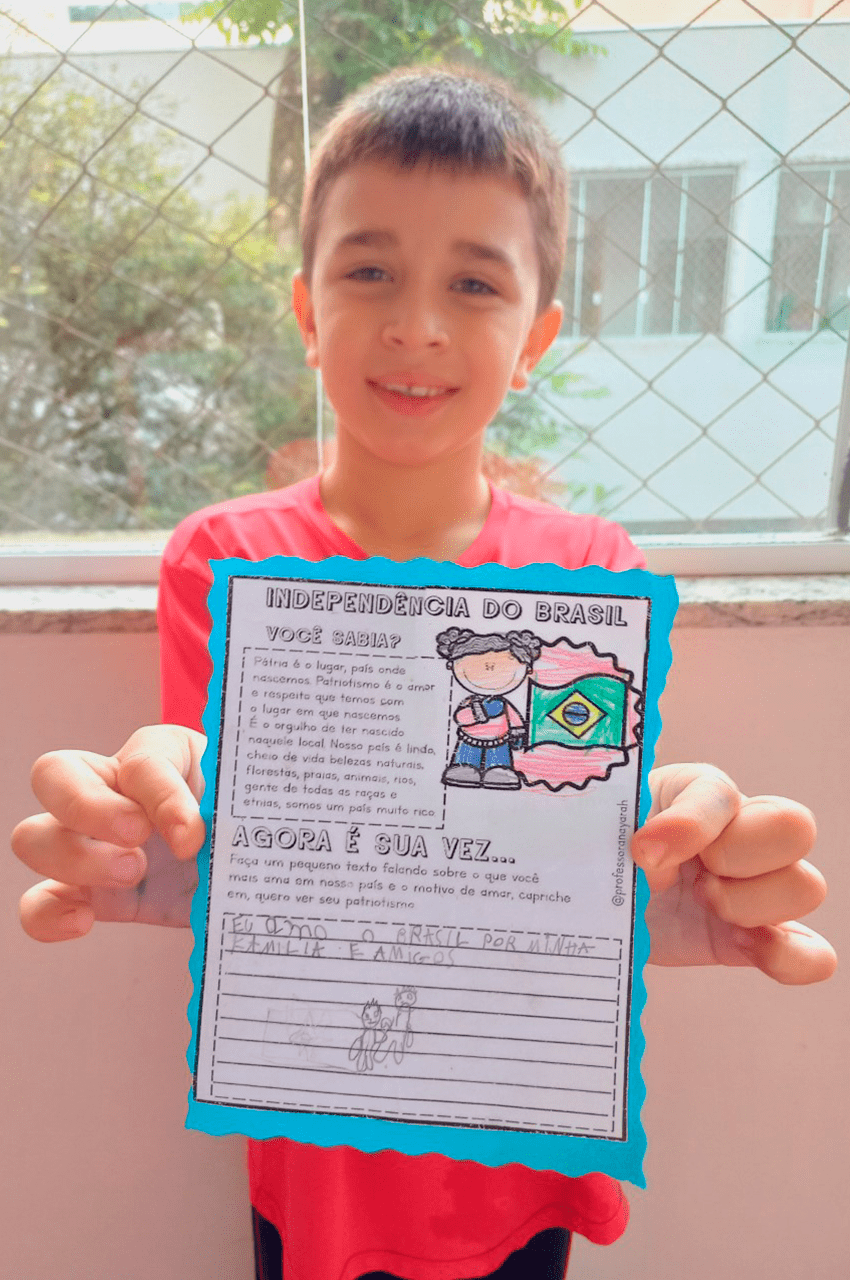 INDEPENDÊNCIA DO BRASIL
VOCÊ SABIA?
Pátria é o lugar, país onde
nascemos. Patriotismo é o amor
e respeito que temos com
o lugar em que nascemos
É o orgulho de ter nascido
naquele local. Nosso país é lindo,
cheio de vida belezas naturais,
florestas, praias, animais, rios,
gente de todas as raças e
etnias, somos um país muito rico
AGORA É SUA VEZ...
Faça um pequeno texto falando sobre o que você
mais ama em nosso país e o motivo de amar, capriche
em, quero ver seu patriotismo
@professoranayarah
EU AMO O BRASIL POR MINHA
FAMILIA E AMIGOS